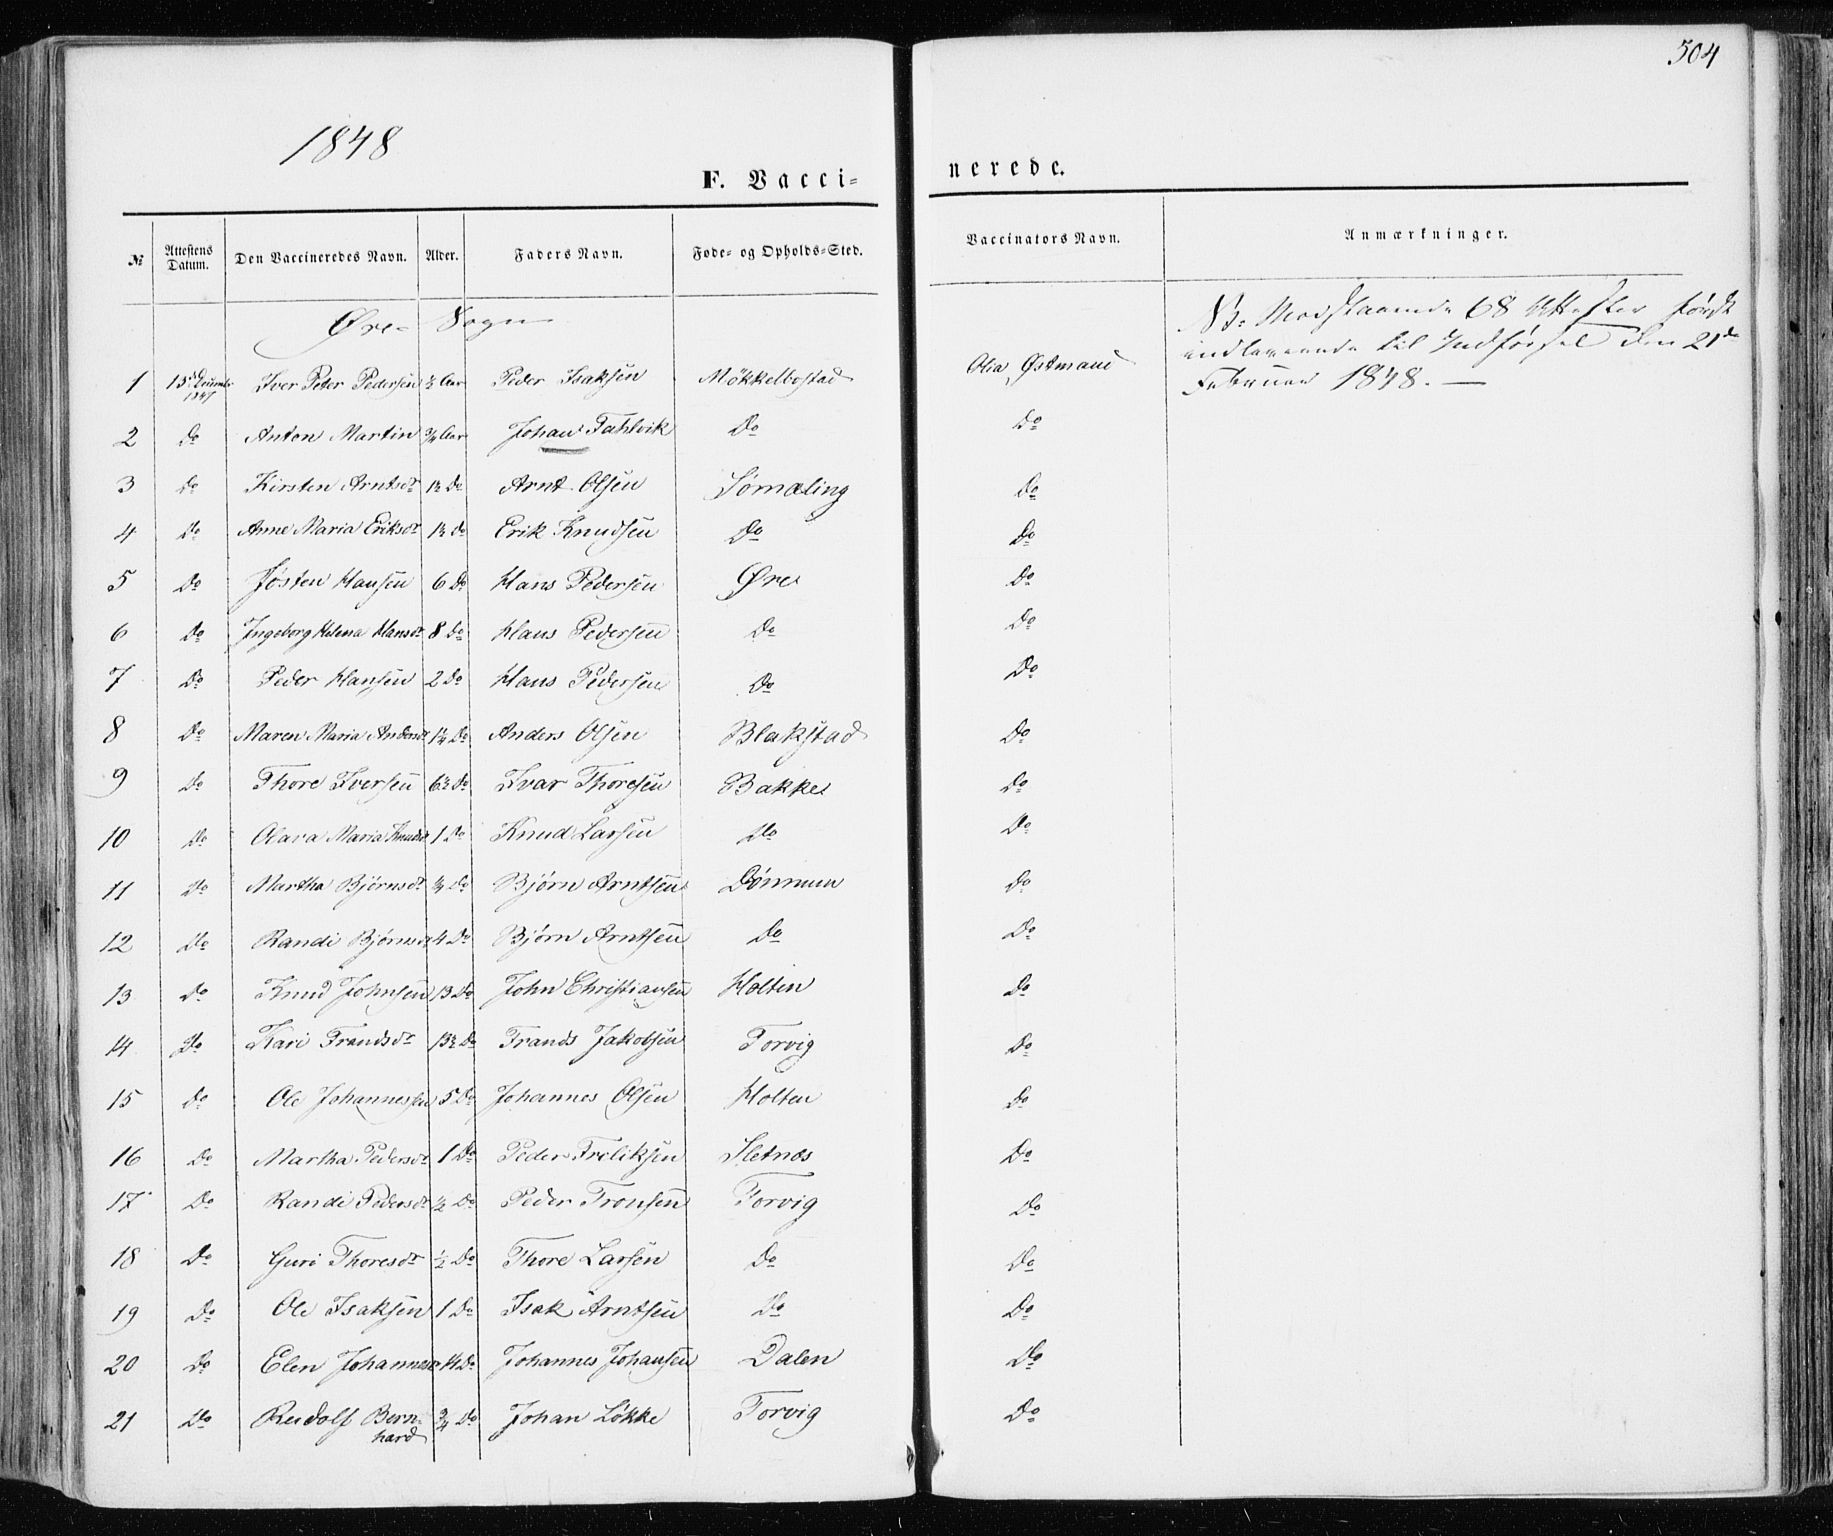 504
1848
F. Vacci-
nerede.
№ | Attestens Datum. | Den Vaccineredes Navn. | Alder. | Faders Navn. | Føde- og Opholds-Sted. | Vaccinators Navn. | Anmærkninger.
Øre Sogn
NB. Modstaaende 68 Attester først
indleverede til Indførsel den 21de
Februar 1848. —
1 | 15de December 1847 | Iver Peder Pedersen | ½ Aar | Peder Isaksen | Møkkelbostad | Olia Østmand
2 | Do | Anton Martin | ¾ Aar | Johan Fahlvik | Do | Do
3 | Do | Kirsten Arntsdr | 1½ Do | Arnt Olsen | Sømæling | Do
4 | Do | Anne Maria Eriksdr | 1½ Do | Erik Knudsen | Do | Do
5 | Do | Jøsten Hansen | 6 Do | Hans Pedersen | Øre | Do
6 | Do | Ingeborg Helena Hansdr | 8 Do | Hans Pedersen | Do | Do
7 | Do | Peder Hansen | 2 Do | Hans Pedersen | Do | Do
8 | Do | Maren Maria Andersdr | 1¼ Do | Anders Olsen | Blakstad | Do
9 | Do | Thore Iversen | 6½ Do | Ivar Thoresen | Bakke | Do
10 | Do | Olava Maria Knudsdr | 1 Do | Knud Larsen | Do | Do
11 | Do | Martha Bjørnsdr | ¾ Do | Bjørn Arntsen | Dønnum | Do
12 | Do | Randi Bjørnsdr | 4 Do | Bjørn Arntsen | Do | Do
13 | Do | Knud Johnsen | 13 Do | John Christiansen | Holten | Do
14 | Do | Kari Frandsdr | 13½ Do | Frands Jakobsen | Torvig | Do
15 | Do | Ole Johannessen | 5 Do | Johannes Olsen | Holten | Do
16 | Do | Martha Pedersdr | 1 Do | Peder Freliksen | Sletnæs | Do
17 | Do | Randi Pedersdr | ½ Do | Peder Tronsen | Torvig | Do
18 | Do | Guri Thoresdr | ½ Do | Thore Larsen | Do | Do
19 | Do | Ole Isaksen | 1 Do | Isak Arntsen | Do | Do
20 | Do | Elen Johannesdr | 14 Do | Johannes Johansen | Dalen | Do
21 | Do | Rudolf Bernhard | ¾ Do | Johan Løkke | Torvig | Do